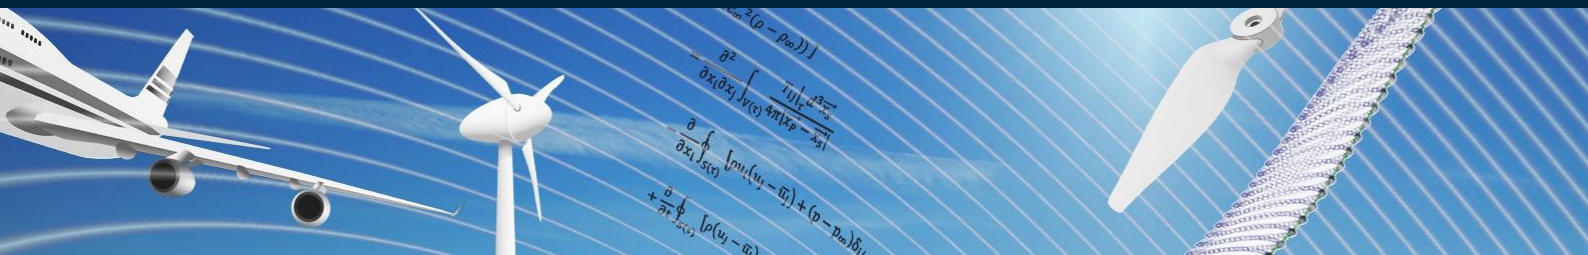 c∞²(ρ − ρ∞))]
− ∂²/∂xᵢ∂xⱼ ∫V(τ) Tᵢⱼ|τ d³x⃗ₛ / 4π|x⃗ₚ − x⃗ₛ|
∂/∂xᵢ ∮S(τ) [ρuᵢ(uⱼ − u̅ⱼ) + (p − p∞)δᵢⱼ
+ ∂/∂t ∮S(τ) [ρ(uⱼ − u̅ⱼ)